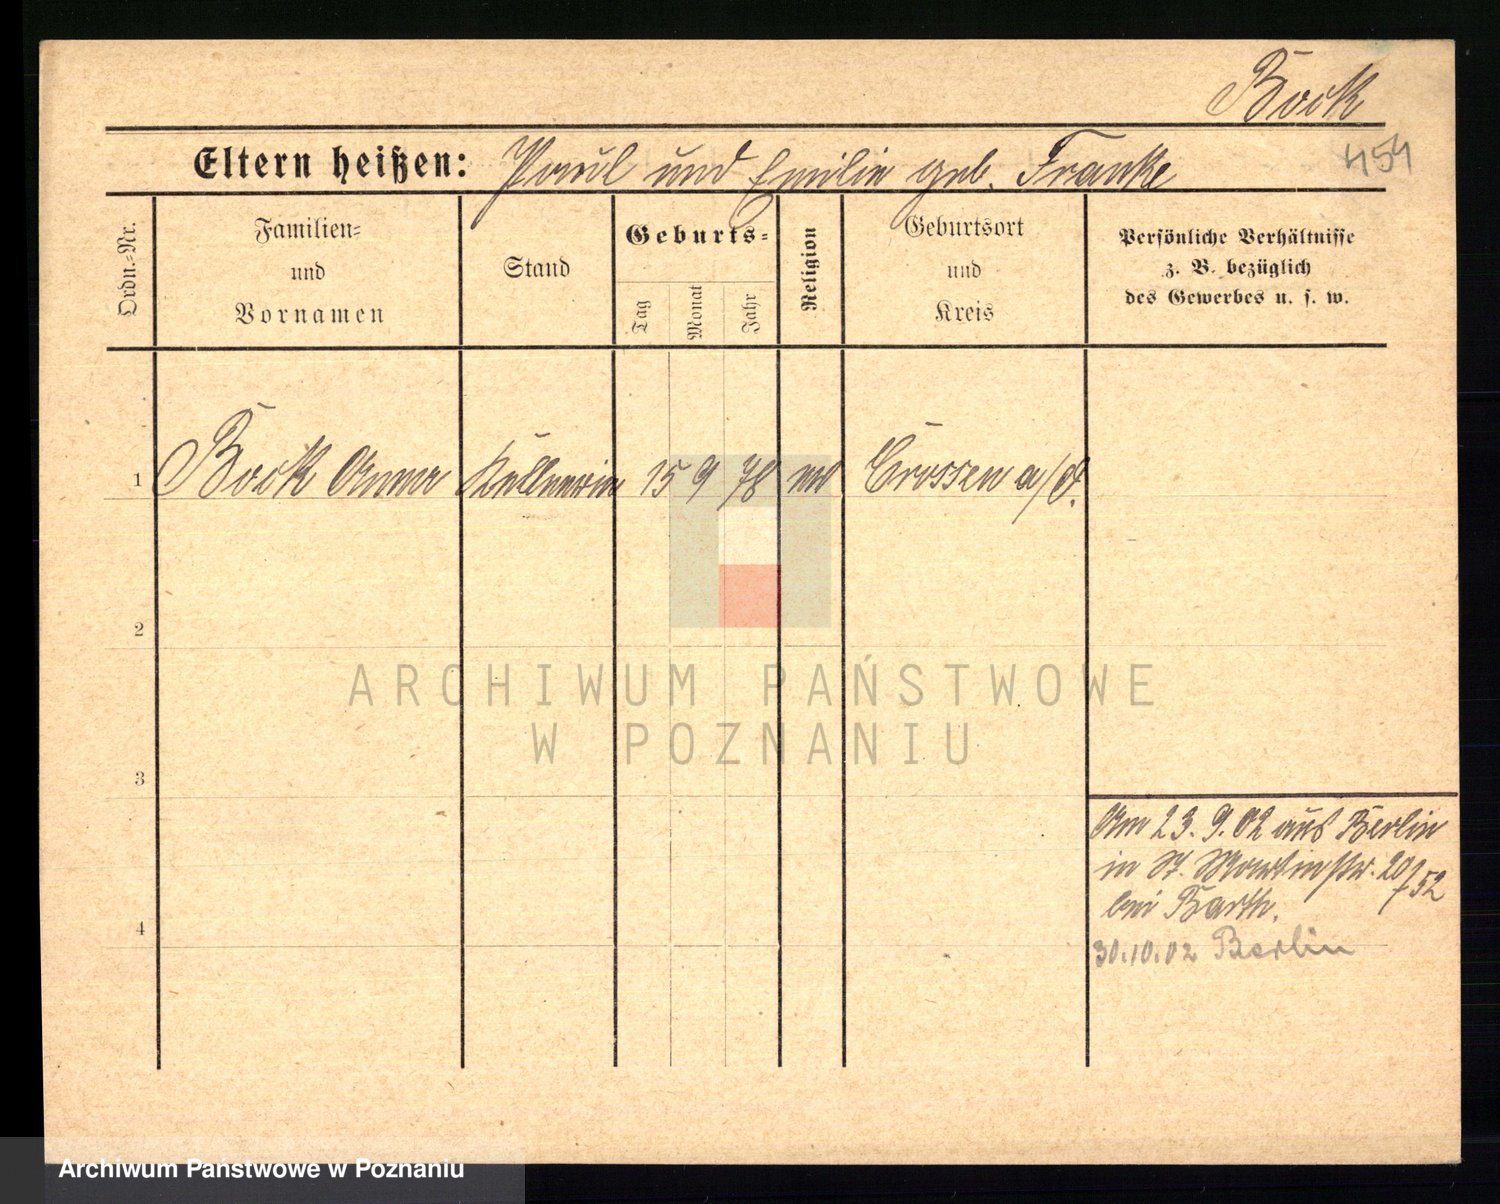 Bock
454
Eltern heißen: Paul und Emilie geb. Franke
Ordn.-Nr.
Familien-
und
Vornamen
Stand
Geburts-
Tag
Monat
Jahr
Religion
Geburtsort
und
Kreis
Persönliche Verhältnisse
z. B. bezüglich
des Gewerbes u. s. w.
1 Bock Anna Kellnerin 15 9 78 ev Crossen a/O.
2
ARCHIWUM PAŃSTWOWE
W POZNANIU
3
Am 23.9.02 aus Berlin
in St. Martinstr. 20/52
bei Barth.
4
30.10.02 Berlin
Archiwum Państwowe w Poznaniu